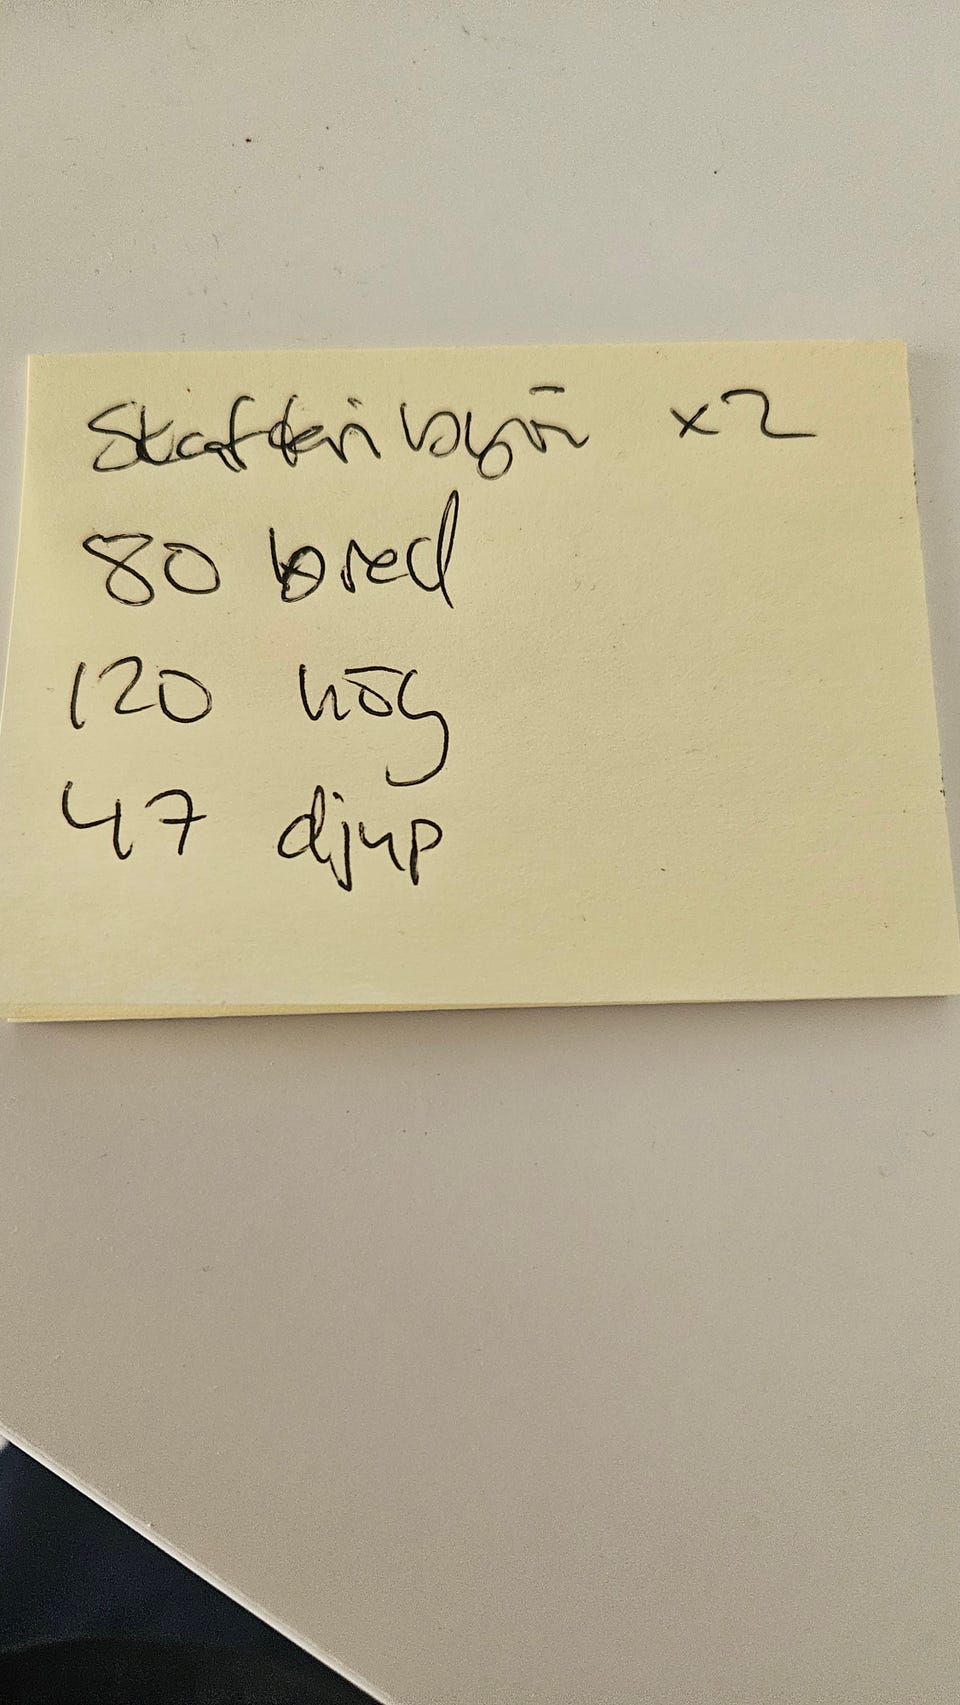 Skafferi byrå x2
80 bred
120 hög
47 djup